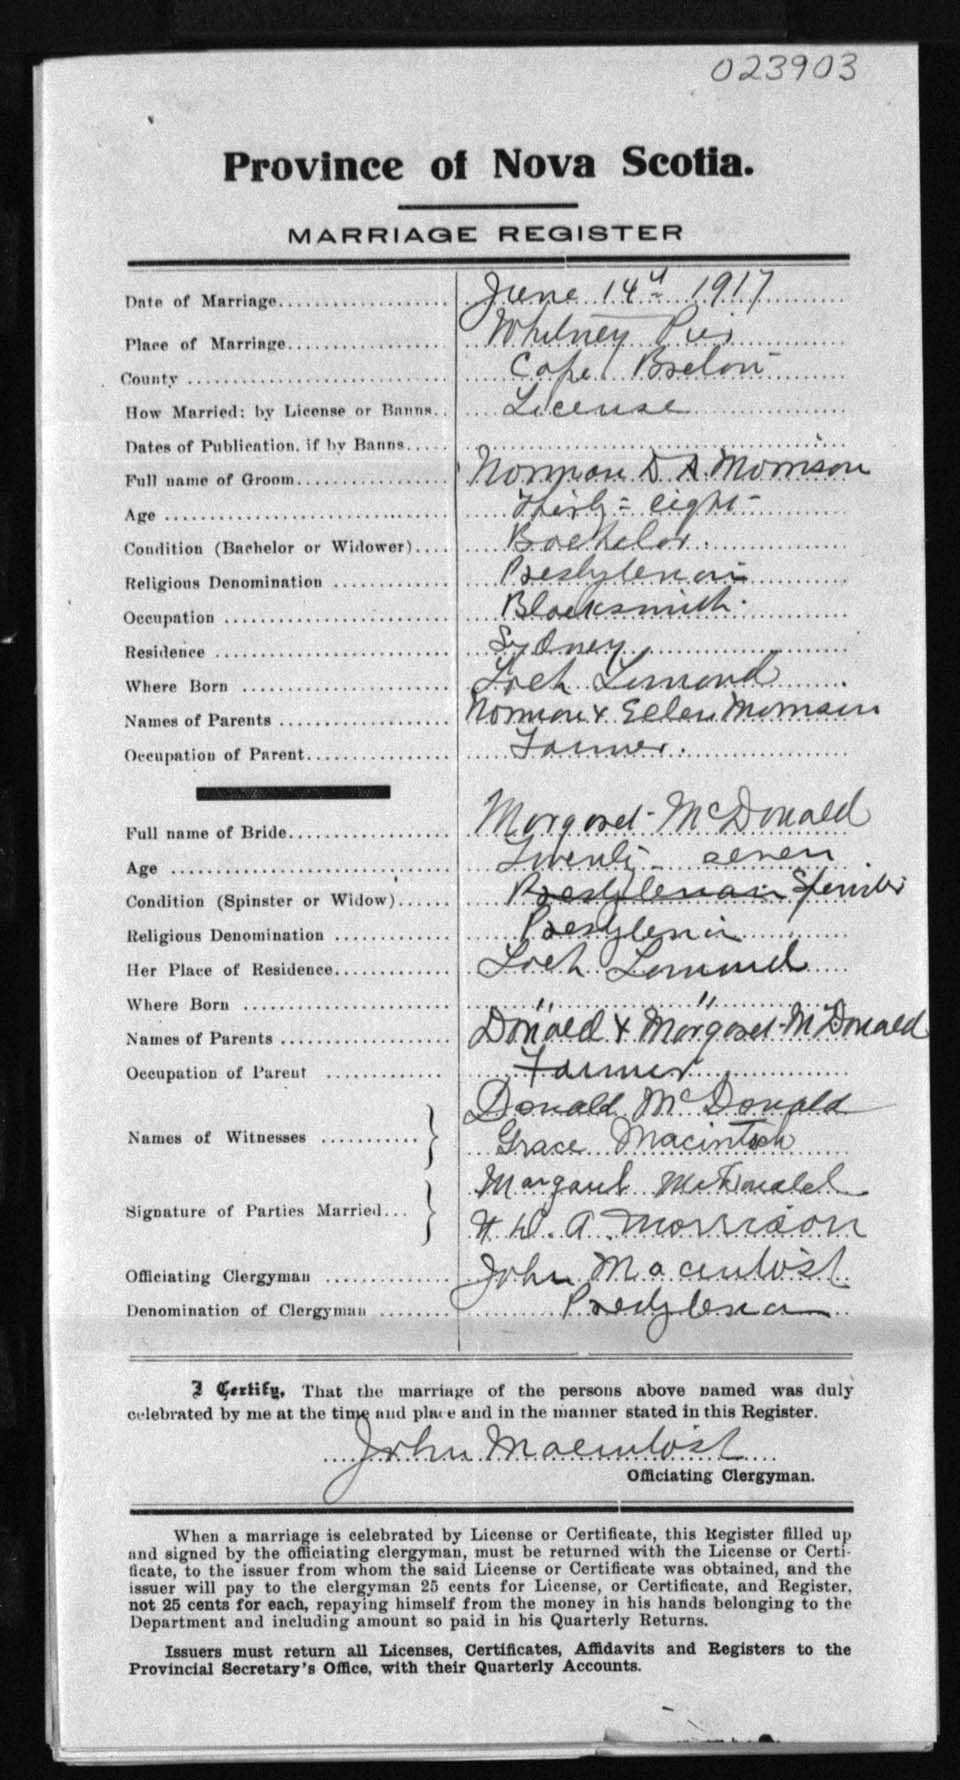 023903
Province of Nova Scotia.
MARRIAGE REGISTER
Date of Marriage.................... June 14th 1917
Place of Marriage................... Whitney Pier
County .............................. Cape Breton
How Married: by License or Banns.. License
Dates of Publication, if by Banns.....
Full name of Groom.................. Norman D A. Morrison
Age ................................ Thirty-eight
Condition (Bachelor or Widower).... Bachelor.
Religious Denomination ............. Presbyterian
Occupation ......................... Blacksmith.
Residence .......................... Sydney
Where Born ......................... Loch Lomond
Names of Parents ................... Norman & Ellen Morrison
Occupation of Parent................ Farmer.
Full name of Bride.................. Margaret McDonald
Age ................................ Twenty-seven
Condition (Spinster or Widow)...... Presbyterian Spinster
Religious Denomination ............. Presbyterian
Her Place of Residence.............. Loch Lomond
Where Born ......................... " "
Names of Parents ................... Donald & Margaret McDonald
Occupation of Parent ............... Farmer
Names of Witnesses ........... } Donald McDonald
Grace Macintosh
Signature of Parties Married... } Margaret McDonald
N D. A. Morrison
Officiating Clergyman .............. John Macintosh
Denomination of Clergyman ........ Presbyterian
I Certify, That the marriage of the persons above named was duly
celebrated by me at the time and place and in the manner stated in this Register.
John Macintosh
Officiating Clergyman.
When a marriage is celebrated by License or Certificate, this Register filled up
and signed by the officiating clergyman, must be returned with the License or Certi-
ficate, to the issuer from whom the said License or Certificate was obtained, and the
issuer will pay to the clergyman 25 cents for License, or Certificate, and Register,
not 25 cents for each, repaying himself from the money in his hands belonging to the
Department and including amount so paid in his Quarterly Returns.
Issuers must return all Licenses, Certificates, Affidavits and Registers to the
Provincial Secretary's Office, with their Quarterly Accounts.